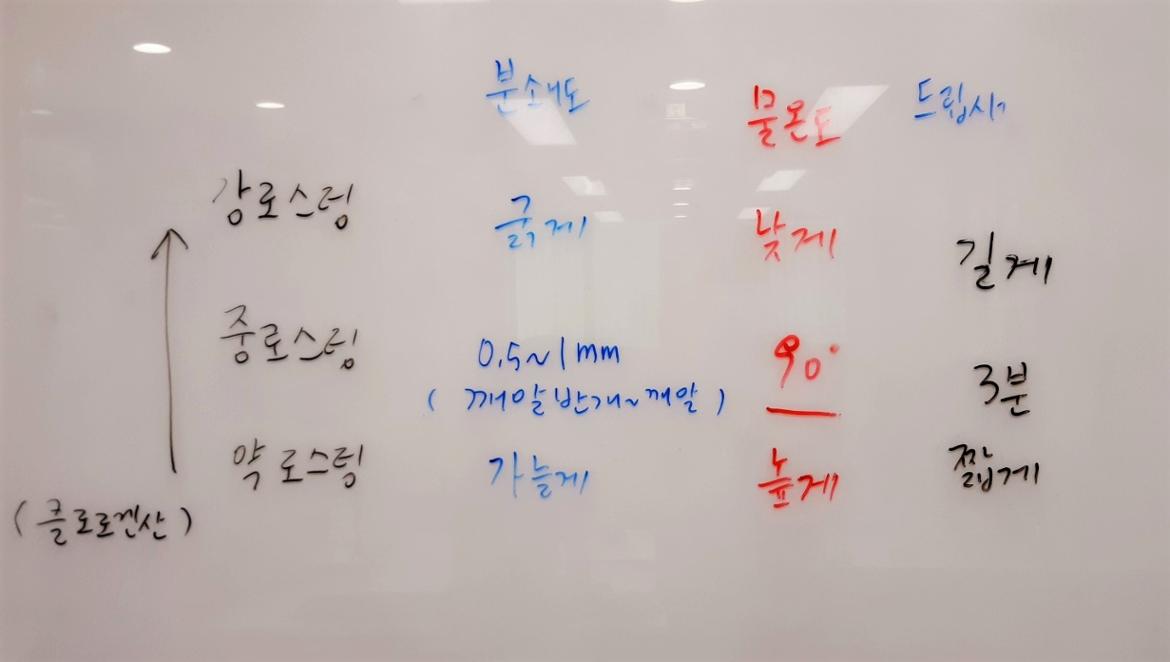 분쇄도 물온도 드립시
강로스팅 굵게 낮게 길게
중로스팅 0.5~1mm 90° 3분
( 깨알반개~깨알 )
약로스팅 가늘게 높게 짧게
( 클로로겐산 )